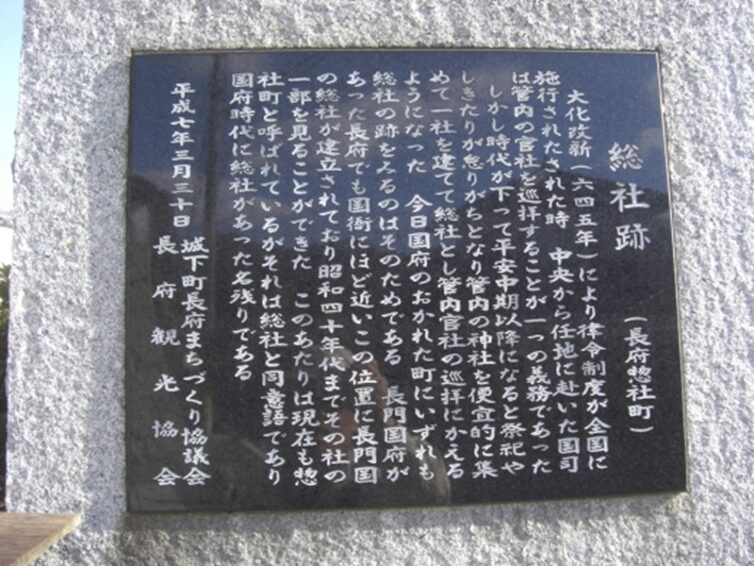 総社跡
(長府惣社町)
大化改新(六四五年)により律令制度が全国に
施行されたされた時 中央から任地に赴いた国司
は管内の官社を巡拝することが一つの義務であった
しかし時代が下って平安中期以降になると祭祀や
しきたりが怠りがちとなり管内の神社を便宜的に集
めて一社を建てて総社とし管内官社の巡拝にかえる
ようになった 今日国府のおかれた町にいずれも
総社の跡をみるのはそのためである 長門国府が
あった長府でも国衙にほど近いこの位置に長門国
の総社が建立されており昭和四十年代までその社の
一部を見ることができた このあたりは現在も惣
社町と呼ばれているがそれは総社と同意語であり
国府時代に総社があった名残りである
平成七年三月三十日
城下町長府まちづくり協議会
長府観光協会